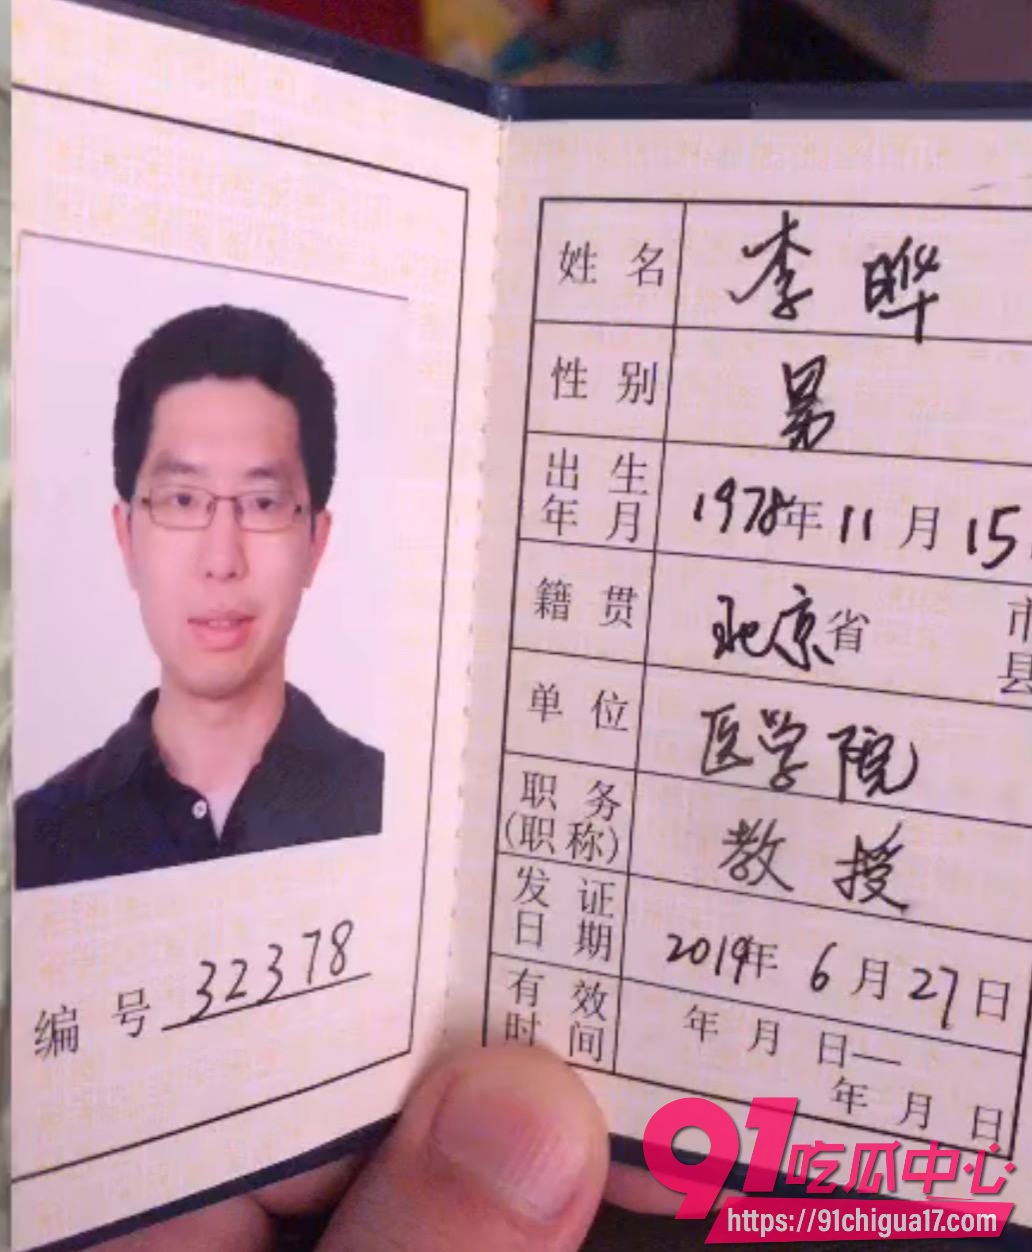 编 号 32378
姓 名 李 晔
性 别 男
出 生
年 月 1978年 11 月 15
籍 贯 北京 省 市
县
单 位 医学院
职 务
(职 称) 教 授
发 证
日 期 2019年 6 月 27 日
有 效
时 间 年 月 日—
年 月 日
91吃瓜中心
https://91chigua17.com